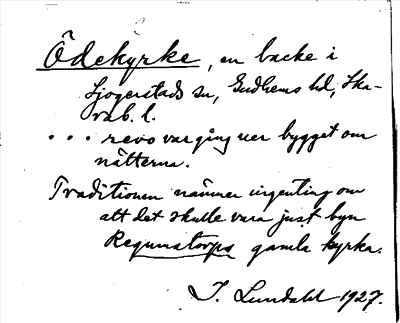 Ödekyrke, en backe i
Sjogerstads sn, Gudhems hd, Ska-
rab. l.
... revo var gång ner bygget om
nätterna.
Traditionen nämner ingenting om
att det skulle vara just byn
Regumatorps gamla kyrka.
J. Lundahl 1927.